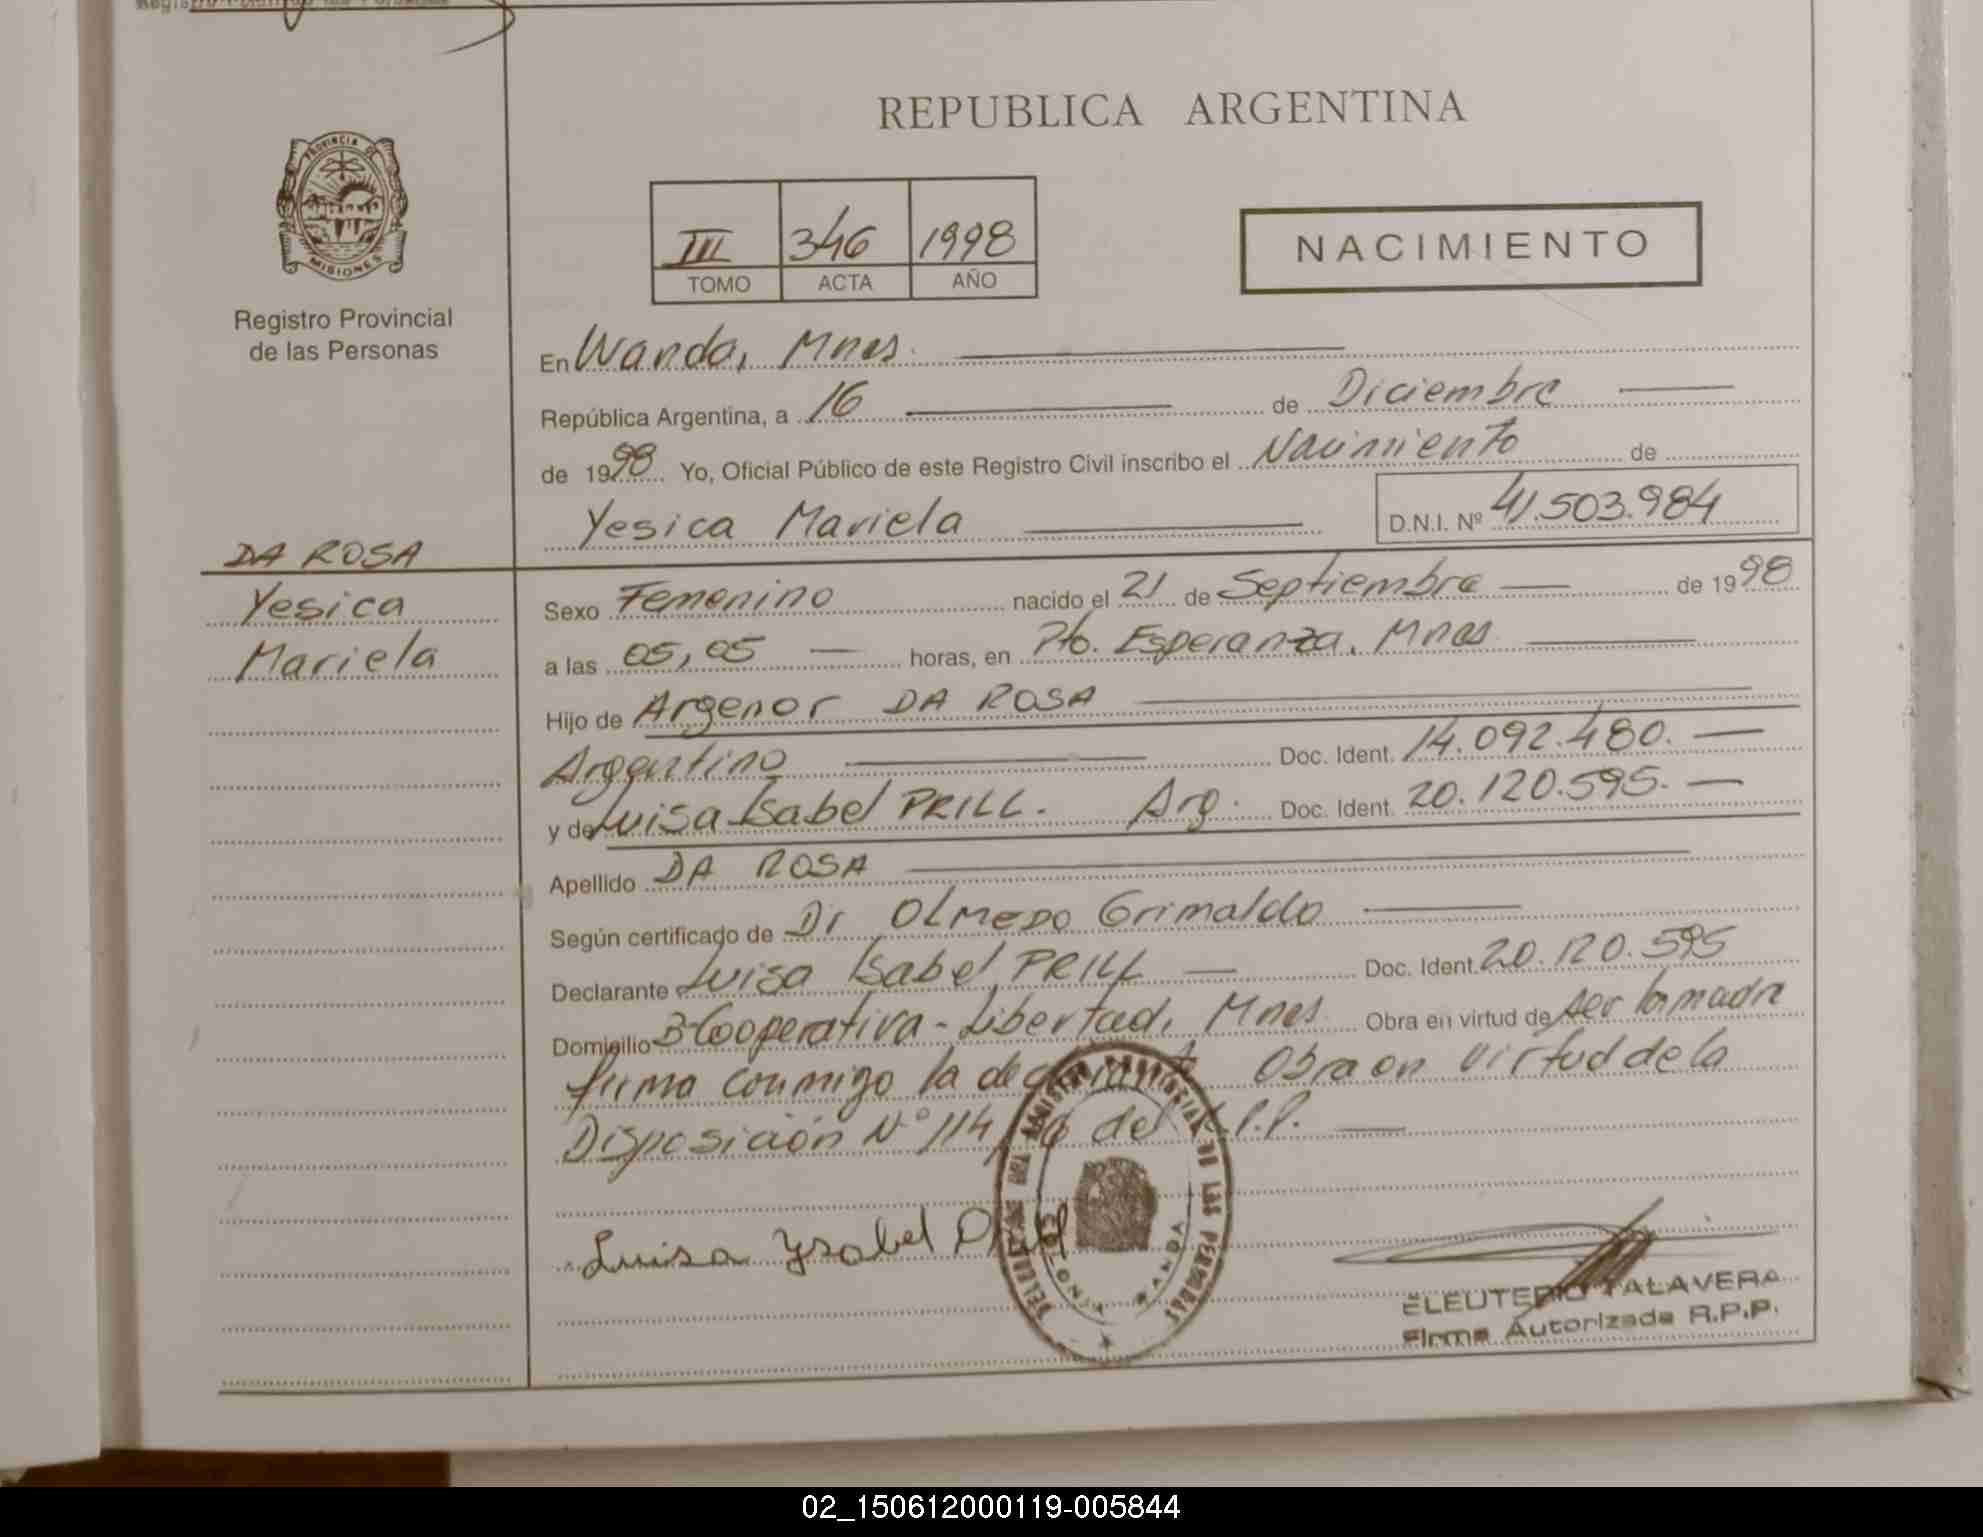 PROVINCIA DE
MISIONES
Registro Provincial
de las Personas
DA ROSA
Yesica
Mariela
REPUBLICA ARGENTINA
III 346 1998
TOMO ACTA AÑO
NACIMIENTO
En Wanda, Mnes.
República Argentina, a 16 de Diciembre
de 1998 Yo, Oficial Público de este Registro Civil inscribo el Nacimiento de
Yesica Mariela D.N.I. Nº 41.503.984
Sexo Femenino nacido el 21 de Septiembre de 1998
a las 05,05 horas, en Pto. Esperanza, Mnes.
Hijo de Argenor DA ROSA
Argentino Doc. Ident. 14.092.480.
y de Luisa Isabel PRILL. Arg. Doc. Ident. 20.120.595.
Apellido DA ROSA
Según certificado de Dr OLMEDO Grimaldo
Declarante Luisa Isabel PRILL Doc. Ident. 20.120.595
Domicilio Bº Cooperativa - Libertad, Mnes. Obra en virtud de ser la madre
firma conmigo la declarante Obra en virtud de la
Disposición Nº 114 del R.P.P.
Luisa Ysabel Prill
DELEGACION DEL REGISTRO PROVINCIAL DE LAS PERSONAS
WANDA
ELEUTERIO TALAVERA
Firma Autorizada R.P.P.
02_150612000119-005844